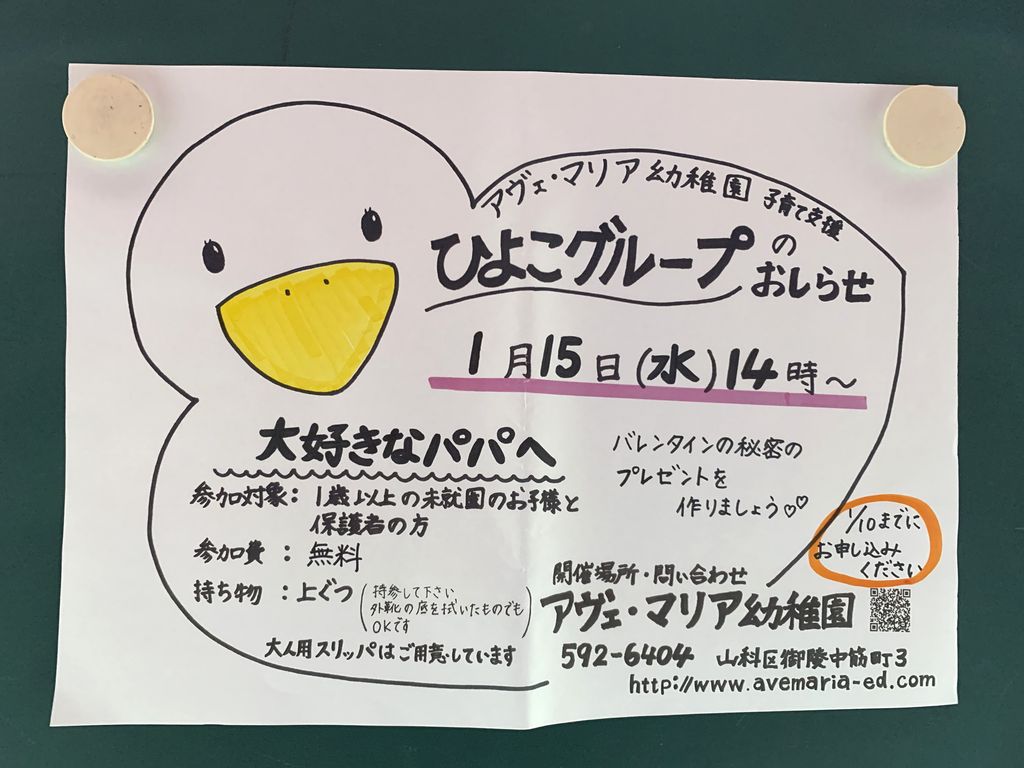 アヴェ・マリア幼稚園 子育て支援
ひよこグループの
おしらせ
1月15日(水)14時〜
大好きなパパへ
バレンタインの秘密の
プレゼントを
作りましょう♡♡
参加対象：1歳以上の未就園のお子様と
保護者の方
参加費：無料
持ち物：上ぐつ(持参して下さい
外靴の底を拭いたものでも
OKです)
大人用スリッパはご用意しています
1/10までに
お申し込み
ください
開催場所・問い合わせ
アヴェ・マリア幼稚園
592-6404 山科区御陵中筋町3
http://www.avemaria-ed.com